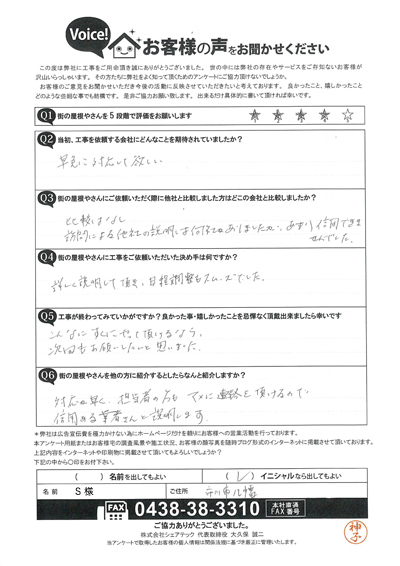 Voice!
お客様の声をお聞かせください
この度は弊社に工事をご用命頂き誠にありがとうございました。世の中には弊社の存在やサービスをご存知ないお客様が
沢山いらっしゃいます。その方たちに弊社をよく知って頂くためのアンケートにご協力頂けないでしょうか。
お客様のご意見をお聞かせいただき今後の活動に反映させていただきたいと考えております。良かったこと、嬉しかったこと
どのような些細な事でも結構です。是非ご協力お願い致します。出来るだけ具体的に書いて頂ければ幸いです。
Q1 街の屋根やさんを5段階で評価をお願いします
Q2 当初、工事を依頼する会社にどんなことを期待されていましたか?
早急に対応して欲しい
Q3 街の屋根やさんにご依頼いただく際に他社と比較しました方はどこの会社と比較しましたか?
比較はなし
訪問による他社の説明は何件かありましたが、あまり信用できま
せんでした。
Q4 街の屋根やさんに工事をご依頼いただいた決め手は何ですか?
詳しく説明して頂き、日程調整もスムーズでした。
Q5 工事が終わってみていかがですか?良かった事・嬉しかったことを忌憚なく頂戴出来ましたら幸いです
こんなにすぐにやって頂けるなら、
次回もお願いしたいと思いました。
Q6 街の屋根やさんを他の方に紹介するとしたらなんと紹介しますか?
対応も早く、担当者の方もマメに連絡を頂けるので
信用のある業者さんと説明します
*弊社は広告宣伝費を極力かけない為にホームページだけを頼りにお客様への営業活動を行っております。
本アンケート用紙またはお客様宅の調査風景や施工状況、お客様の顔写真を随時ブログ形式のインターネットに掲載させて頂いております。
上記内容をインターネットや印刷物に掲載させて頂いてもよろしいでしょうか?
下記の中から〇印をお付下さい。
( )名前を出してもよい ( )イニシャルなら出してもよい
名前 S様 ご住所 市川市八幡
FAX 0438-38-3310 本社直通 FAX番号
ご協力ありがとうございました。
株式会社シェアテック 代表取締役 大久保 誠二
当アンケートで取得したお客様の個人情報は関係法規に基づき厳正に管理いたします。
神子